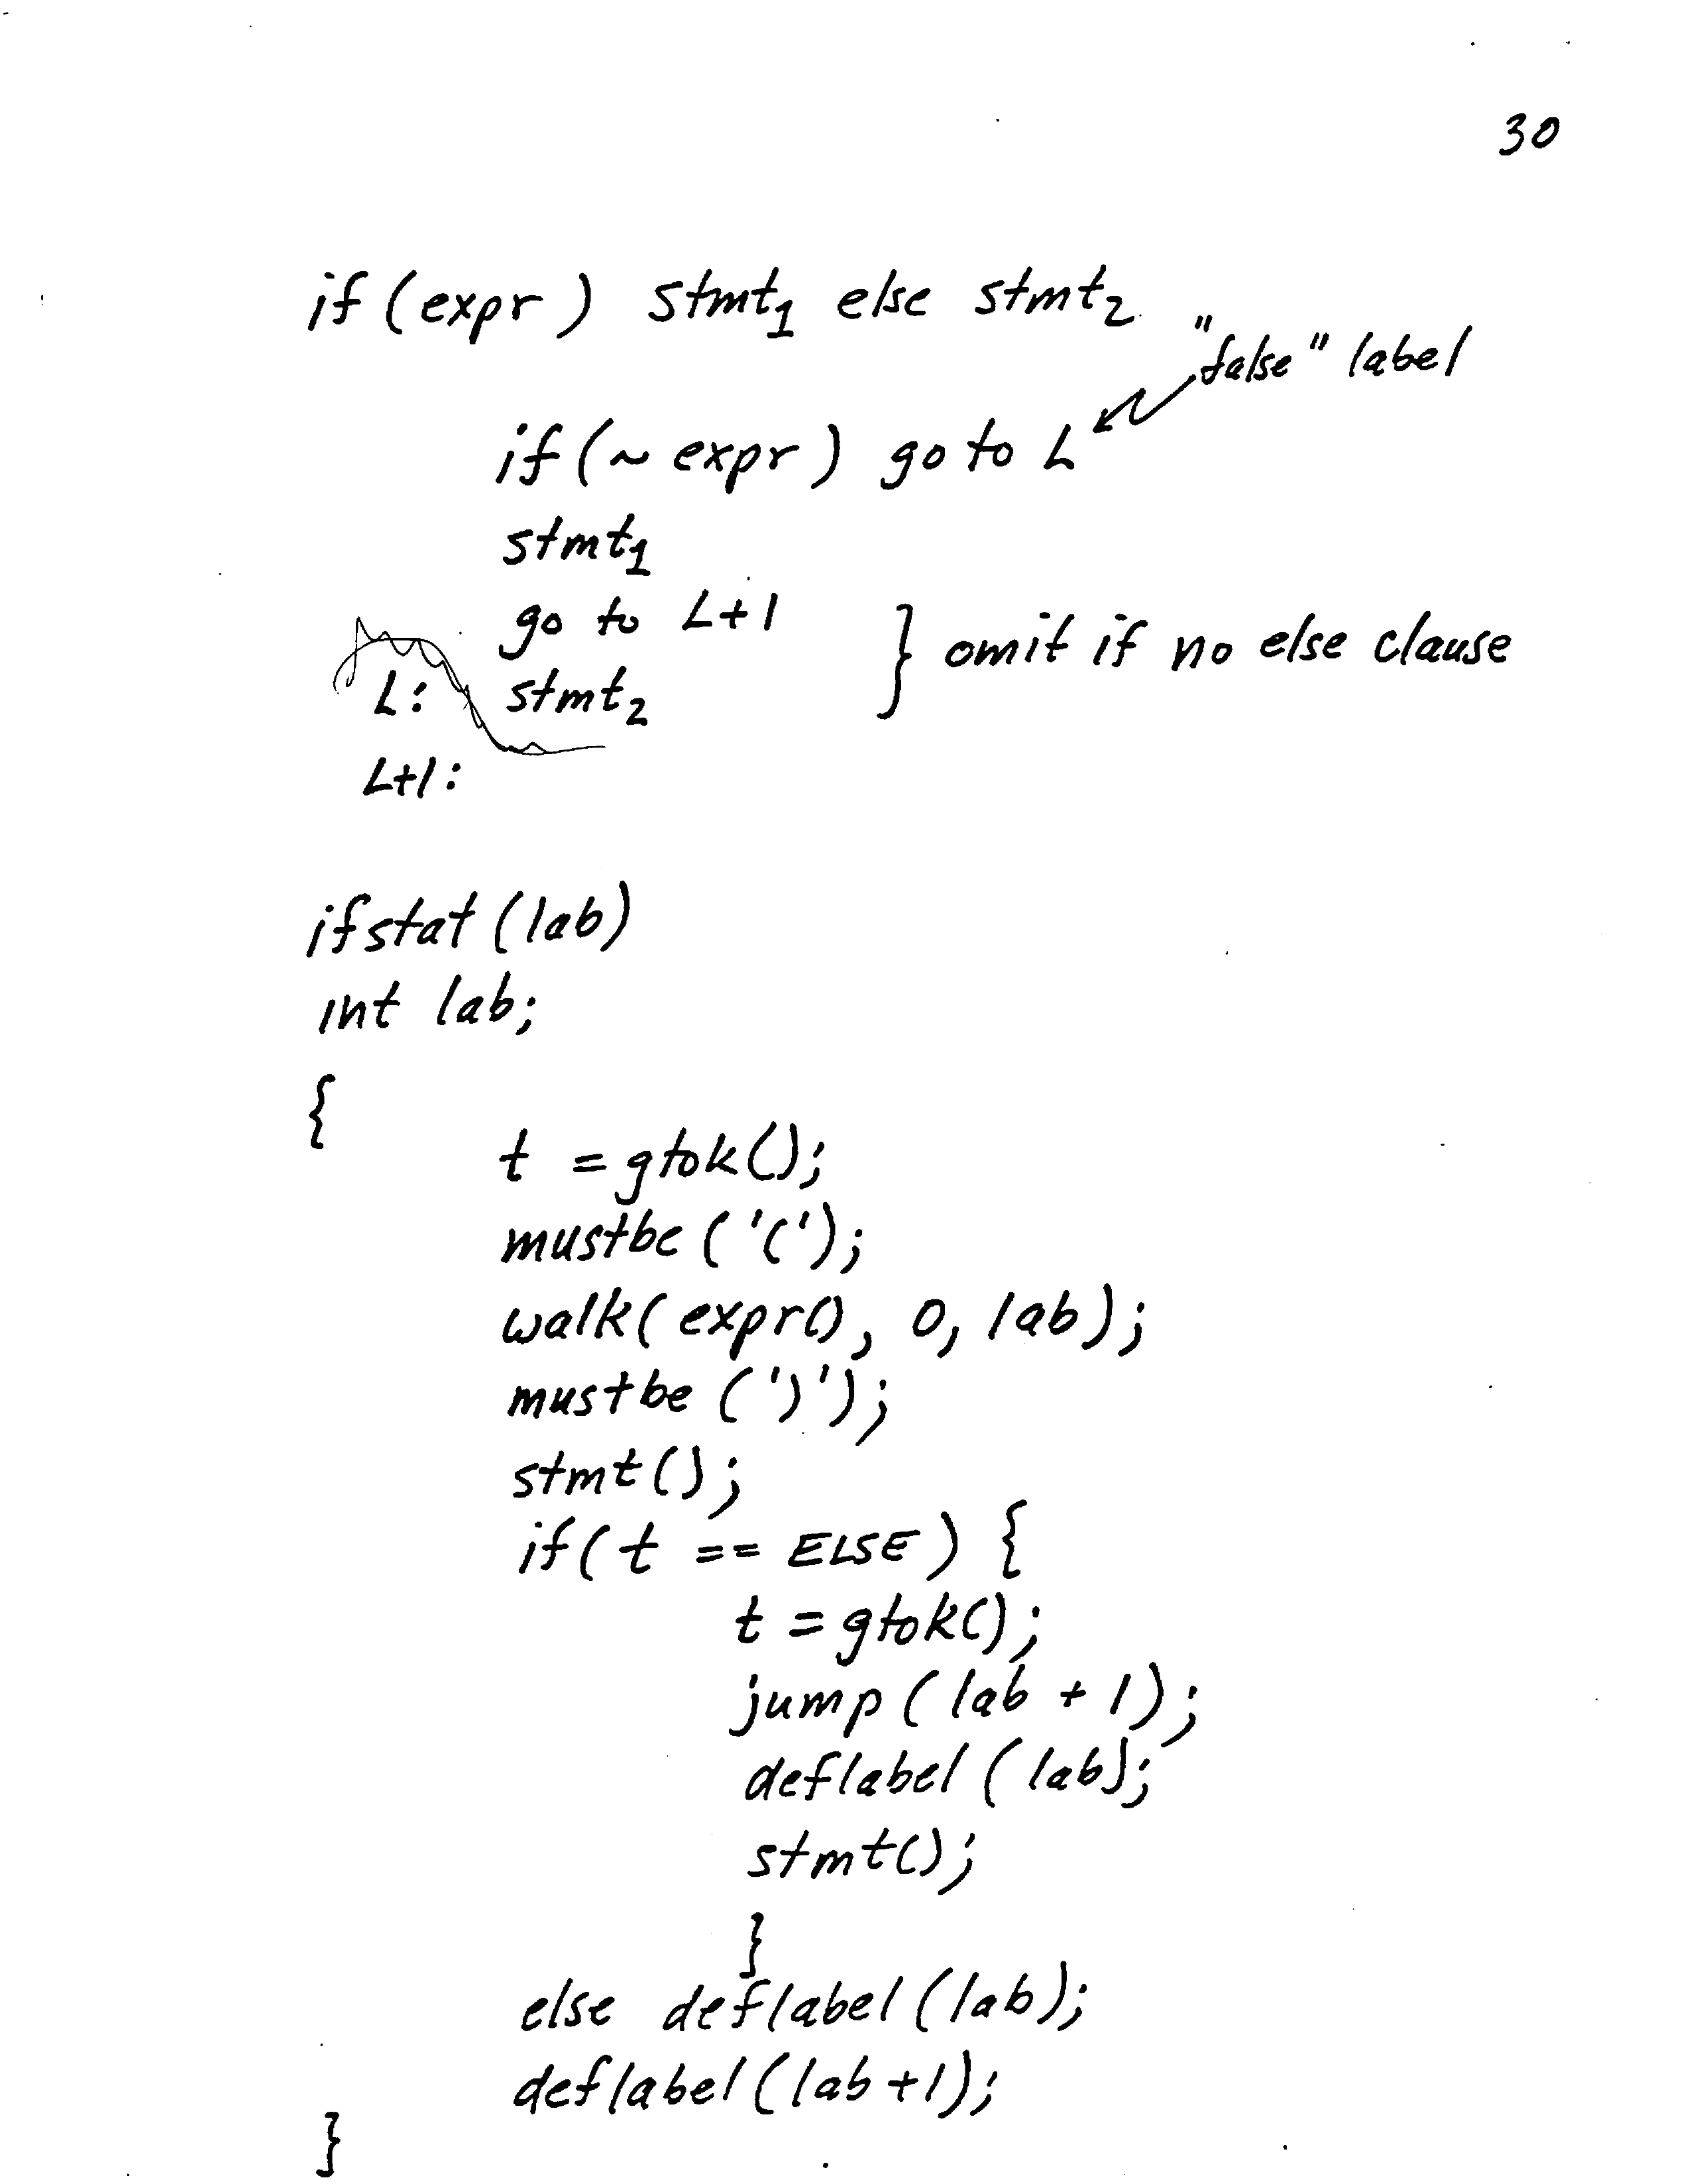 30
if (expr) stmt₁ else stmt₂
"false" label
if (~ expr) go to L
stmt₁
go to L+1
} omit if no else clause
L: stmt₂
L+1:
ifstat (lab)
int lab;
{
t = gtok();
mustbe ('(');
walk( expr(), 0, lab);
mustbe (')');
stmt();
if( t == ELSE) {
t = gtok();
jump ( lab + 1);
deflabel ( lab);
stmt();
}
else deflabel (lab);
deflabel (lab +1);
}